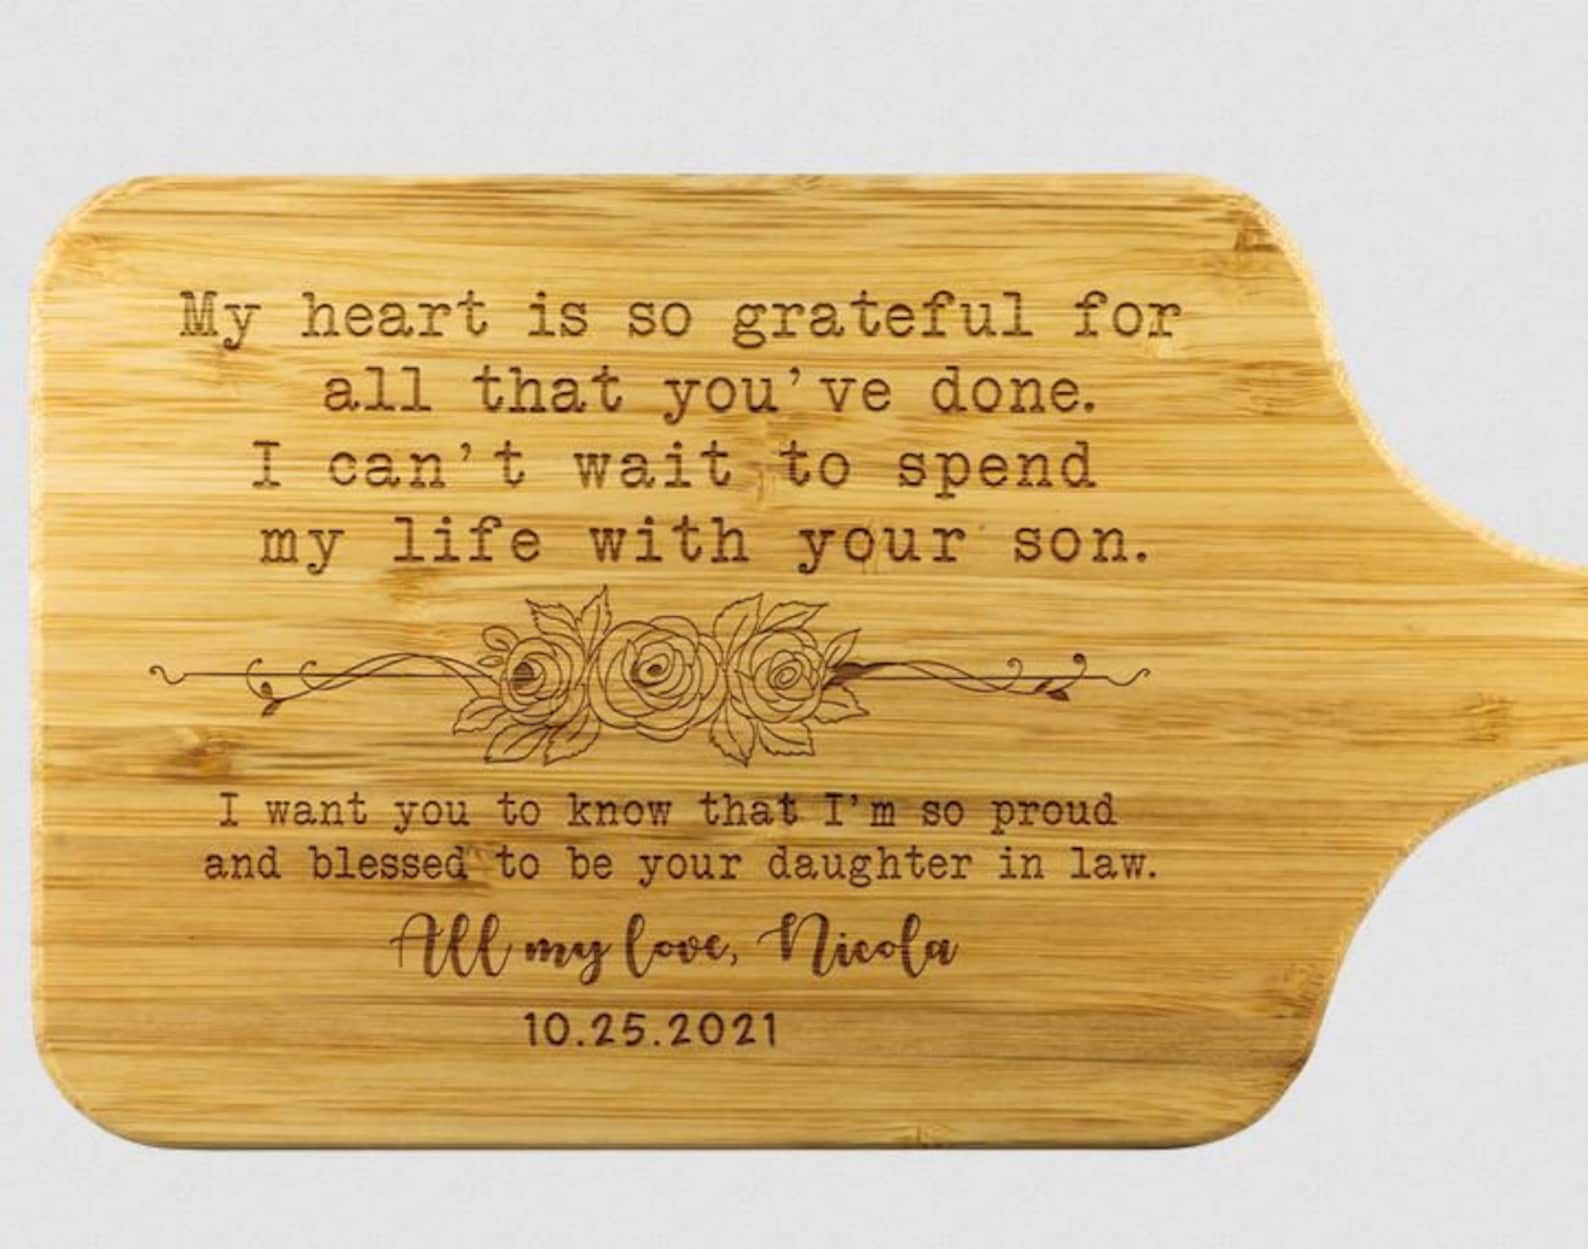 My heart is so grateful for
all that you've done.
I can't wait to spend
my life with your son.
I want you to know that I'm so proud
and blessed to be your daughter in law.
All my love, Nicola
10.25.2021